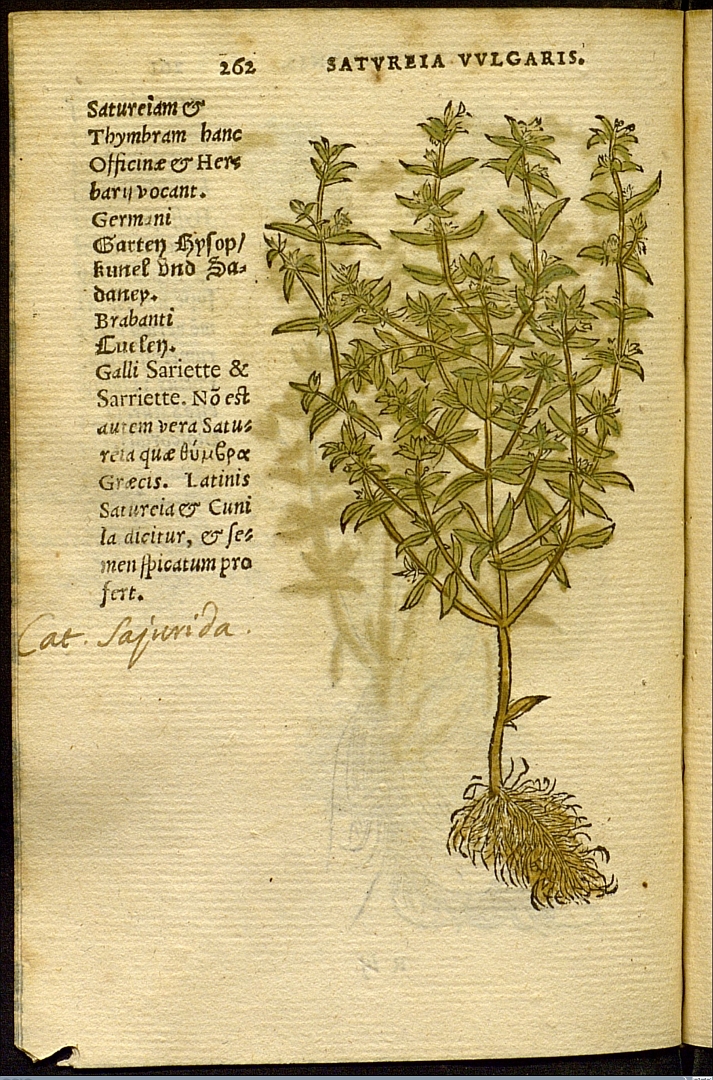 262 SATVREIA VVLGARIS.
Satureiam &
Thymbram hanc
Officinæ & Her⸗
barij vocant.
Germani
Garten Hysop/
kunel vnd Sa⸗
daney.
Brabanti
Galli Sariette &
Sarriette. Nõ est
autem vera Satu⸗
reia quæ θύμβρα
Græcis. Latinis
Satureia & Cuni
la dicitur, & se⸗
men spicatum pro
fert.
Cat. Sajurida.